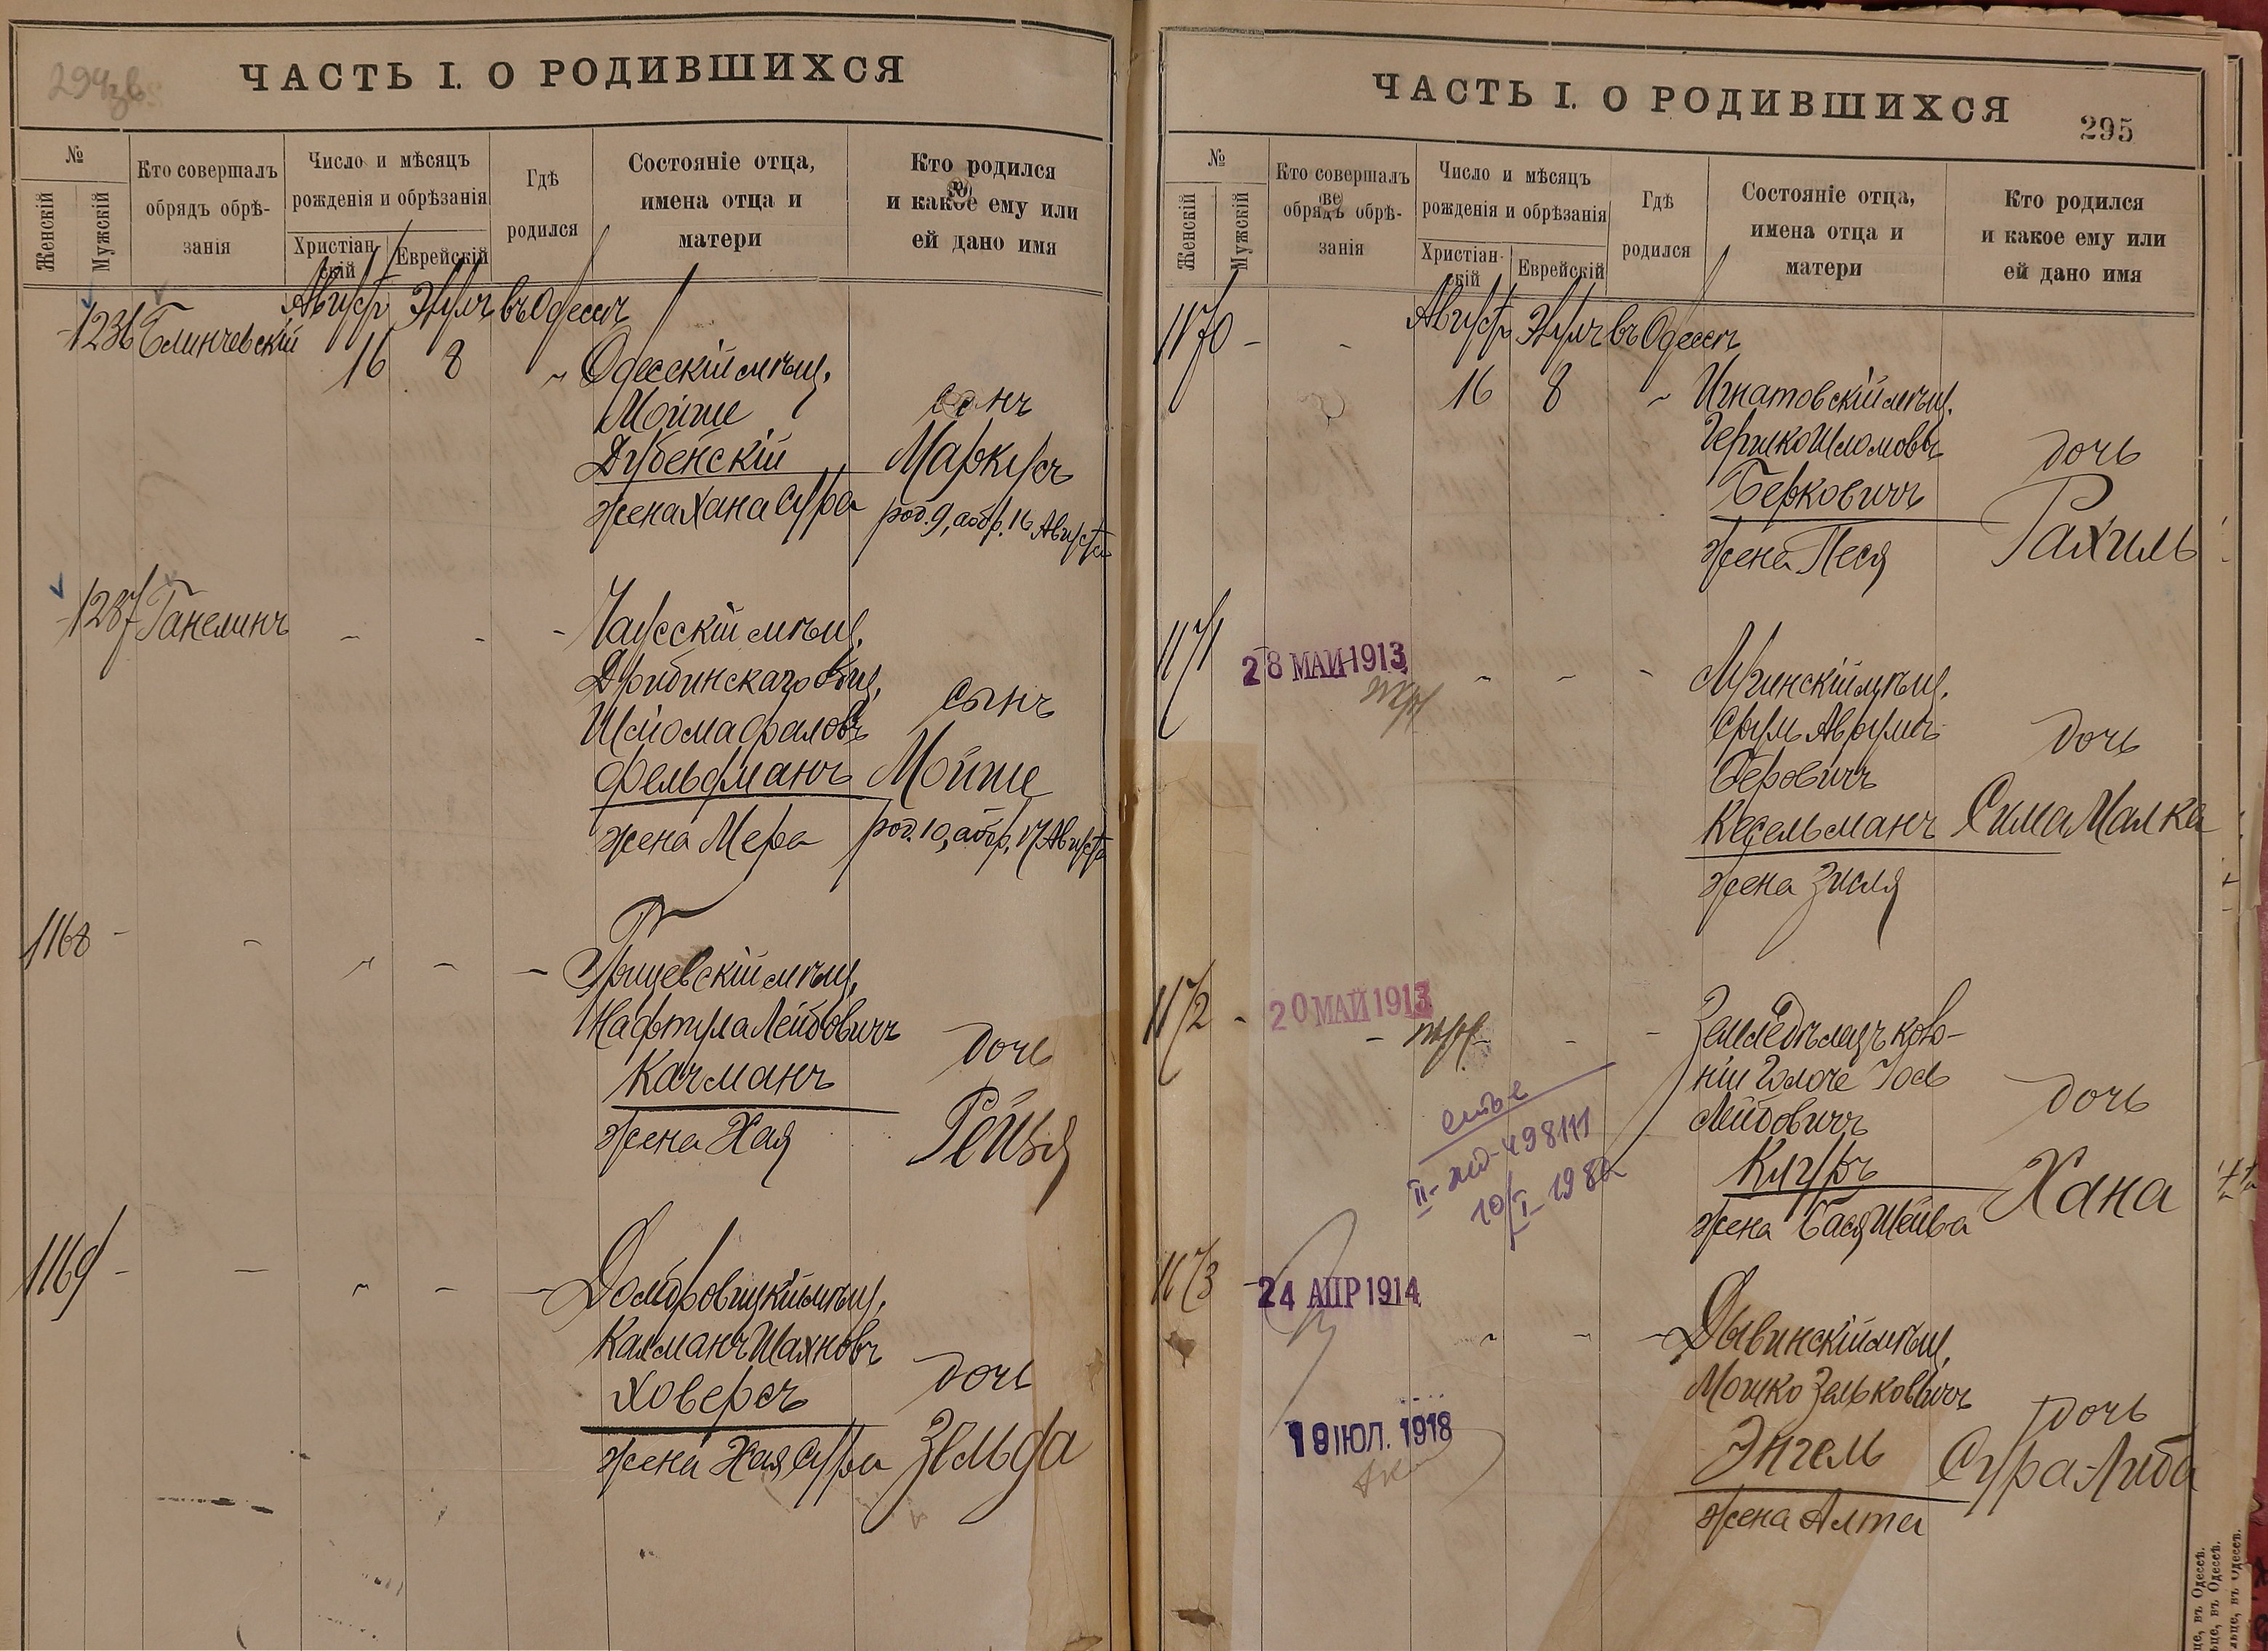 294зв.
ЧАСТЬ I. О РОДИВШИХСЯ
№
Женскій
Мужскій
Кто совершалъ
обрядъ обрѣ-
занія
Число и мѣсяцъ
рожденія и обрѣзанія
Христіан-
скій
Еврейскій
Гдѣ
родился
Состояніе отца,
имена отца и
матери
Кто родился
и какое ему или
ей дано имя
Августъ Элулъ въ Одессѣ
1236 Блинчевскій
16 8 Одесскій мѣщ.
Мойше сынъ
Дубенскій Маркусъ
жена Хана Сура род. 9, а обр. 16 Августа
1237 Ганелинъ
Чаусскій мѣщ.
Дрибинскаго общ. сынъ
Шлiома
Фельдманъ Мойше
жена Мера род. 10, а обр. 17 Августа
1168
мѣщ.
Нафтула Лейбовичъ дочь
Качманъ
жена Хая Рейзя
1169
Домбровицкій мѣщ.
Калманъ Шахновъ дочь
Ховерсъ
жена Хая Сура Зельда
ЧАСТЬ I. О РОДИВШИХСЯ
295
№
Женскій
Мужскій
Кто совершалъ
обрядъ обрѣ-
занія
Число и мѣсяцъ
рожденія и обрѣзанія
Христіан-
скій
Еврейскій
Гдѣ
родился
Состояніе отца,
имена отца и
матери
Кто родился
и какое ему или
ей дано имя
Августъ Элулъ въ Одессѣ
1170
16 8 Игнатовскій мѣщ.
Гершко Шломовъ дочь
Берковичъ
жена Песя Рахиль
1171
28 МАЙ 1913
Лугинскій мѣщ.
Сруль Аврумъ дочь
Беровичъ
Кесельманъ Сима Малка
жена Зисля
1172
20 МАЙ 1913
Земледѣлецъ коло-
ніи
Лейбовичъ дочь
Клугъ
жена Бася Шейва Хана
II-жд-498111
10/I-1982
1173
24 АПР 1914
Дывинскій мѣщ.
Мошко Зельковичъ дочь
Энгель Сура-Либа
жена Алта
19 ІЮЛ. 1918